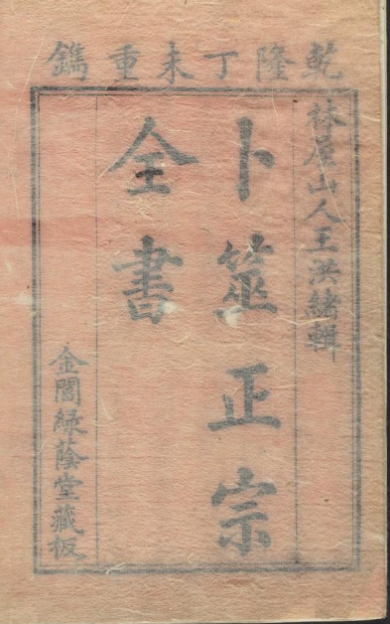 乾隆丁未重鐫
林屋山人王洪緒輯
卜筮正宗
全書
金閶綠蔭堂藏板